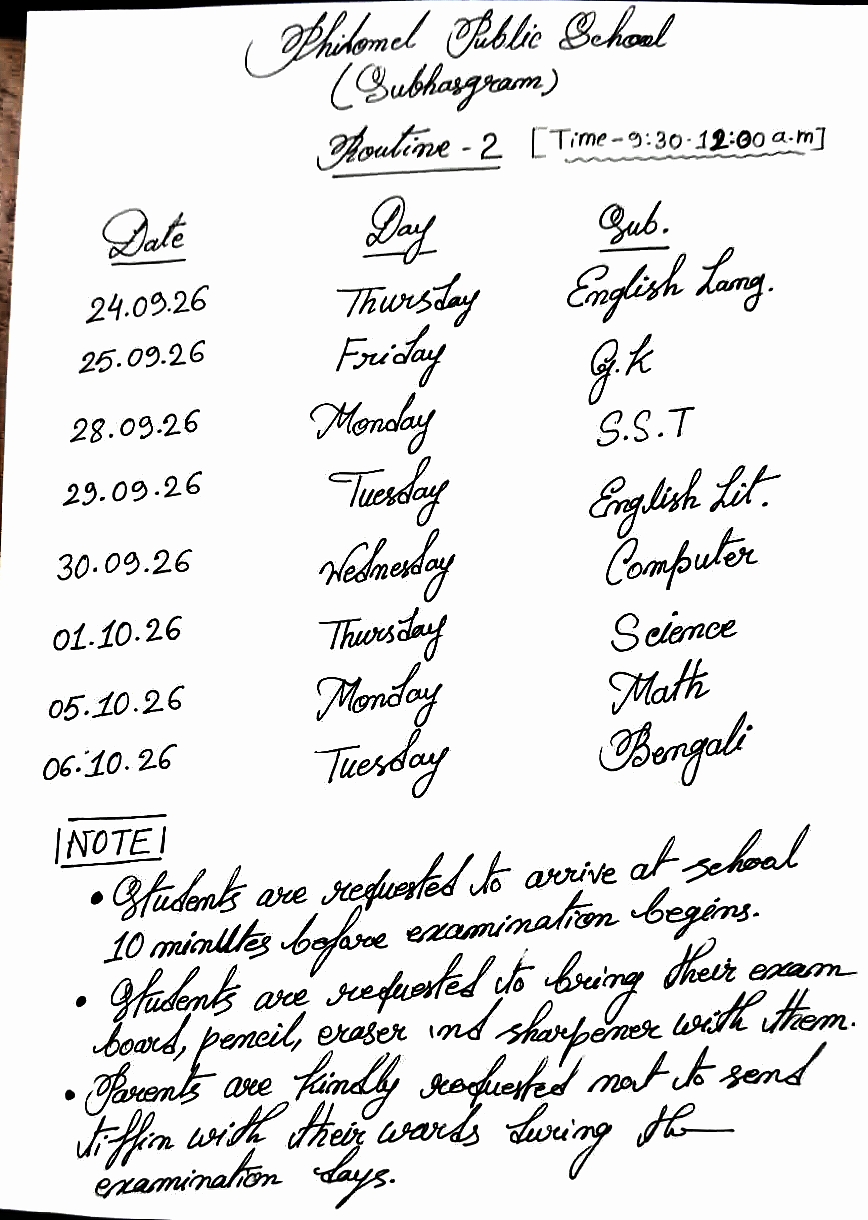 Philomel Public School
(Subhasgram)
Routine - 2 [Time - 9:30 - 12:00 a.m]
Date Day Sub.
24.09.26 Thursday English Lang.
25.09.26 Friday G.K
28.09.26 Monday S.S.T
29.09.26 Tuesday English Lit.
30.09.26 Wednesday Computer
01.10.26 Thursday Science
05.10.26 Monday Math
06.10.26 Tuesday Bengali
NOTE
• Students are requested to arrive at school
10 minutes before examination begins.
• Students are requested to bring their exam
board, pencil, eraser and sharpener with them.
• Parents are kindly requested not to send
tiffin with their wards during the
examination days.